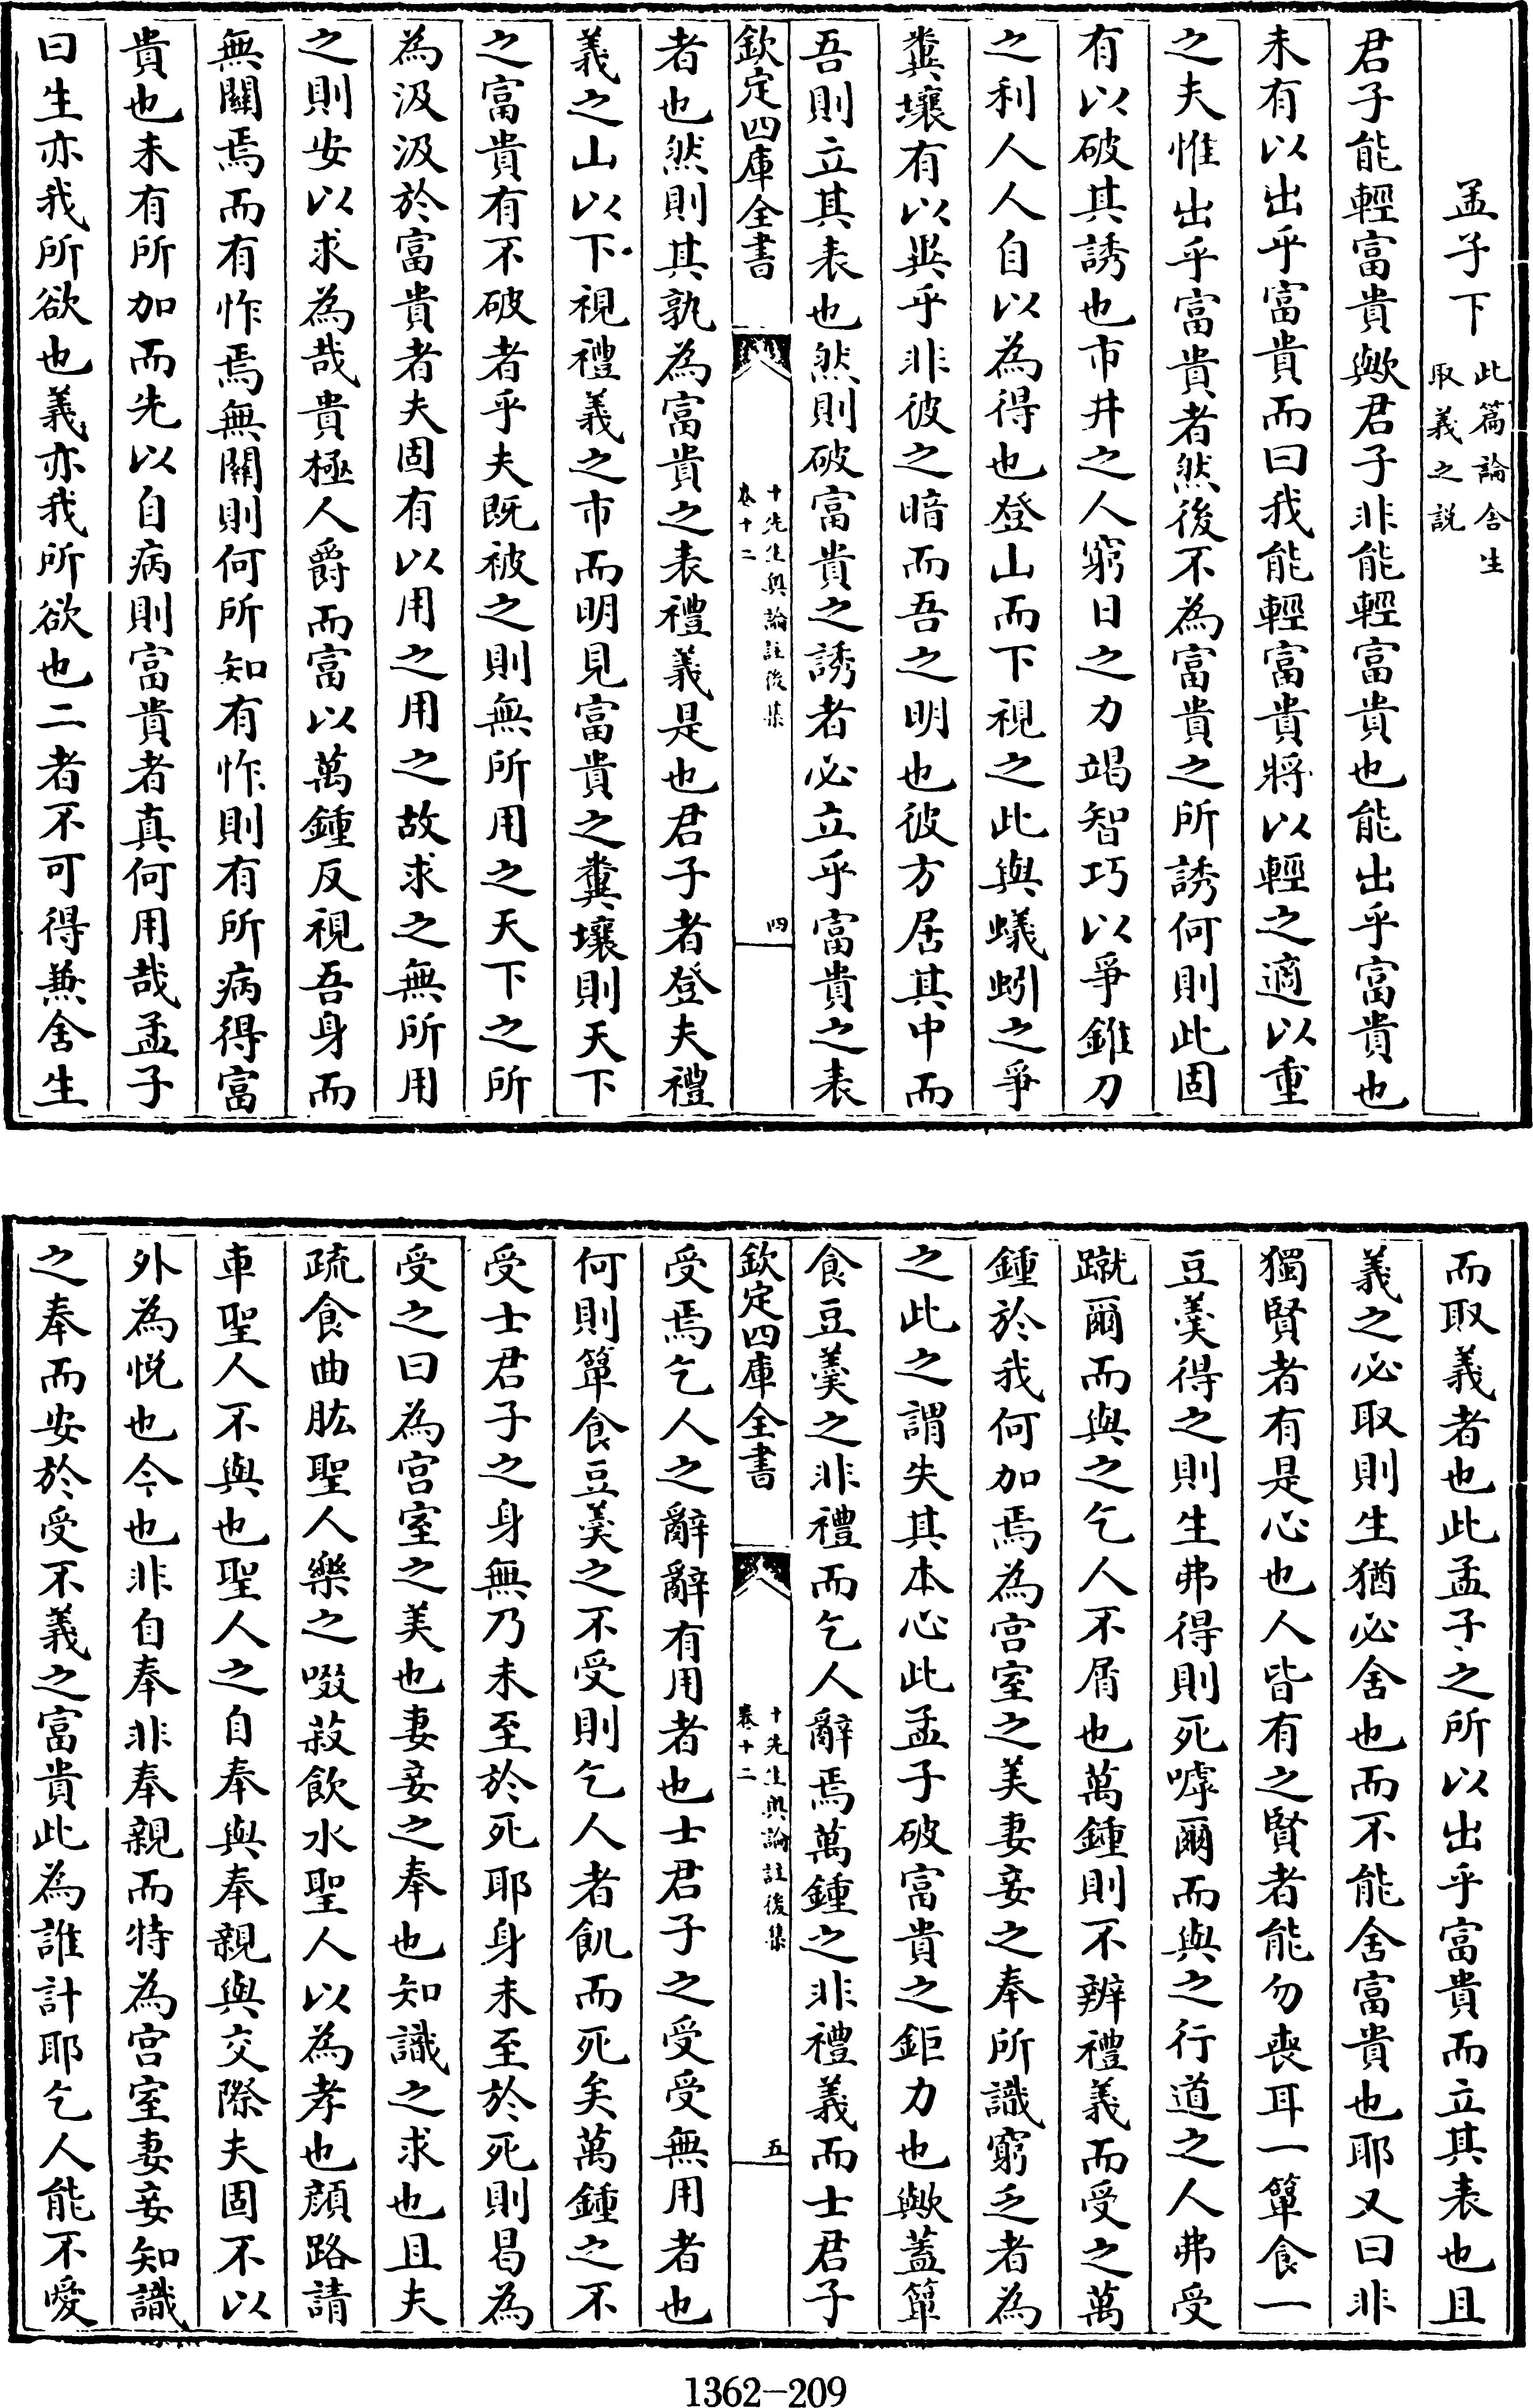 孟子下此篇論舍生取義之説
君子能輕富貴歟君子非能輕富貴也能出乎富貴也
未有以出乎富貴而曰我能輕富貴將以輕之適以重
之夫惟出乎富貴者然後不為富貴之所誘何則此固
有以破其誘也市井之人窮日之力竭智巧以爭錐刀
之利人人自以為得也登山而下視之此與蟻蚓之爭
糞壤有以異乎非彼之暗而吾之明也彼方居其中而
吾則立其表也然則破富貴之誘者必立乎富貴之表
欽定四庫全書
十先生奧論註後集
卷十二
四
者也然則其孰為富貴之表禮義是也君子者登夫禮
義之山以下視禮義之市而明見富貴之糞壤則天下
之富貴有不破者乎夫既被之則無所用之天下之所
為汲汲於富貴者夫固有以用之用之故求之無所用
之則安以求為哉貴極人爵而富以萬鍾反視吾身而
無關焉而有怍焉無關則何所知有怍則有所病得富
貴也未有所加而先以自病則富貴者真何用哉孟子
曰生亦我所欲也義亦我所欲也二者不可得兼舍生
而取義者也此孟子之所以出乎富貴而立其表也且
義之必取則生猶必舍也而不能舍富貴也耶又曰非
獨賢者有是心也人皆有之賢者能勿喪耳一簞食一
豆羹得之則生弗得則死嘑爾而與之行道之人弗受
蹴爾而與之乞人不屑也萬鍾則不辨禮義而受之萬
鍾於我何加焉為宮室之美妻妾之奉所識窮乏者為
之此之謂失其本心此孟子破富貴之鉅力也歟蓋簞
食豆羹之非禮而乞人辭焉萬鍾之非禮義而士君子
欽定四庫全書
十先生奧論註後集
卷十二
五
受焉乞人之辭辭有用者也士君子之受受無用者也
何則簞食豆羹之不受則乞人者飢而死矣萬鍾之不
受士君子之身無乃未至於死耶身未至於死則曷為
受之曰為宮室之美也妻妾之奉也知識之求也且夫
疏食曲肱聖人樂之啜菽飲水聖人以為孝也顏路請
車聖人不與也聖人之自奉與奉親與交際夫固不以
外為悅也今也非自奉非奉親而特為宮室妻妾知識
之奉而安於受不義之富貴此為誰計耶乞人能不噯
1362-209